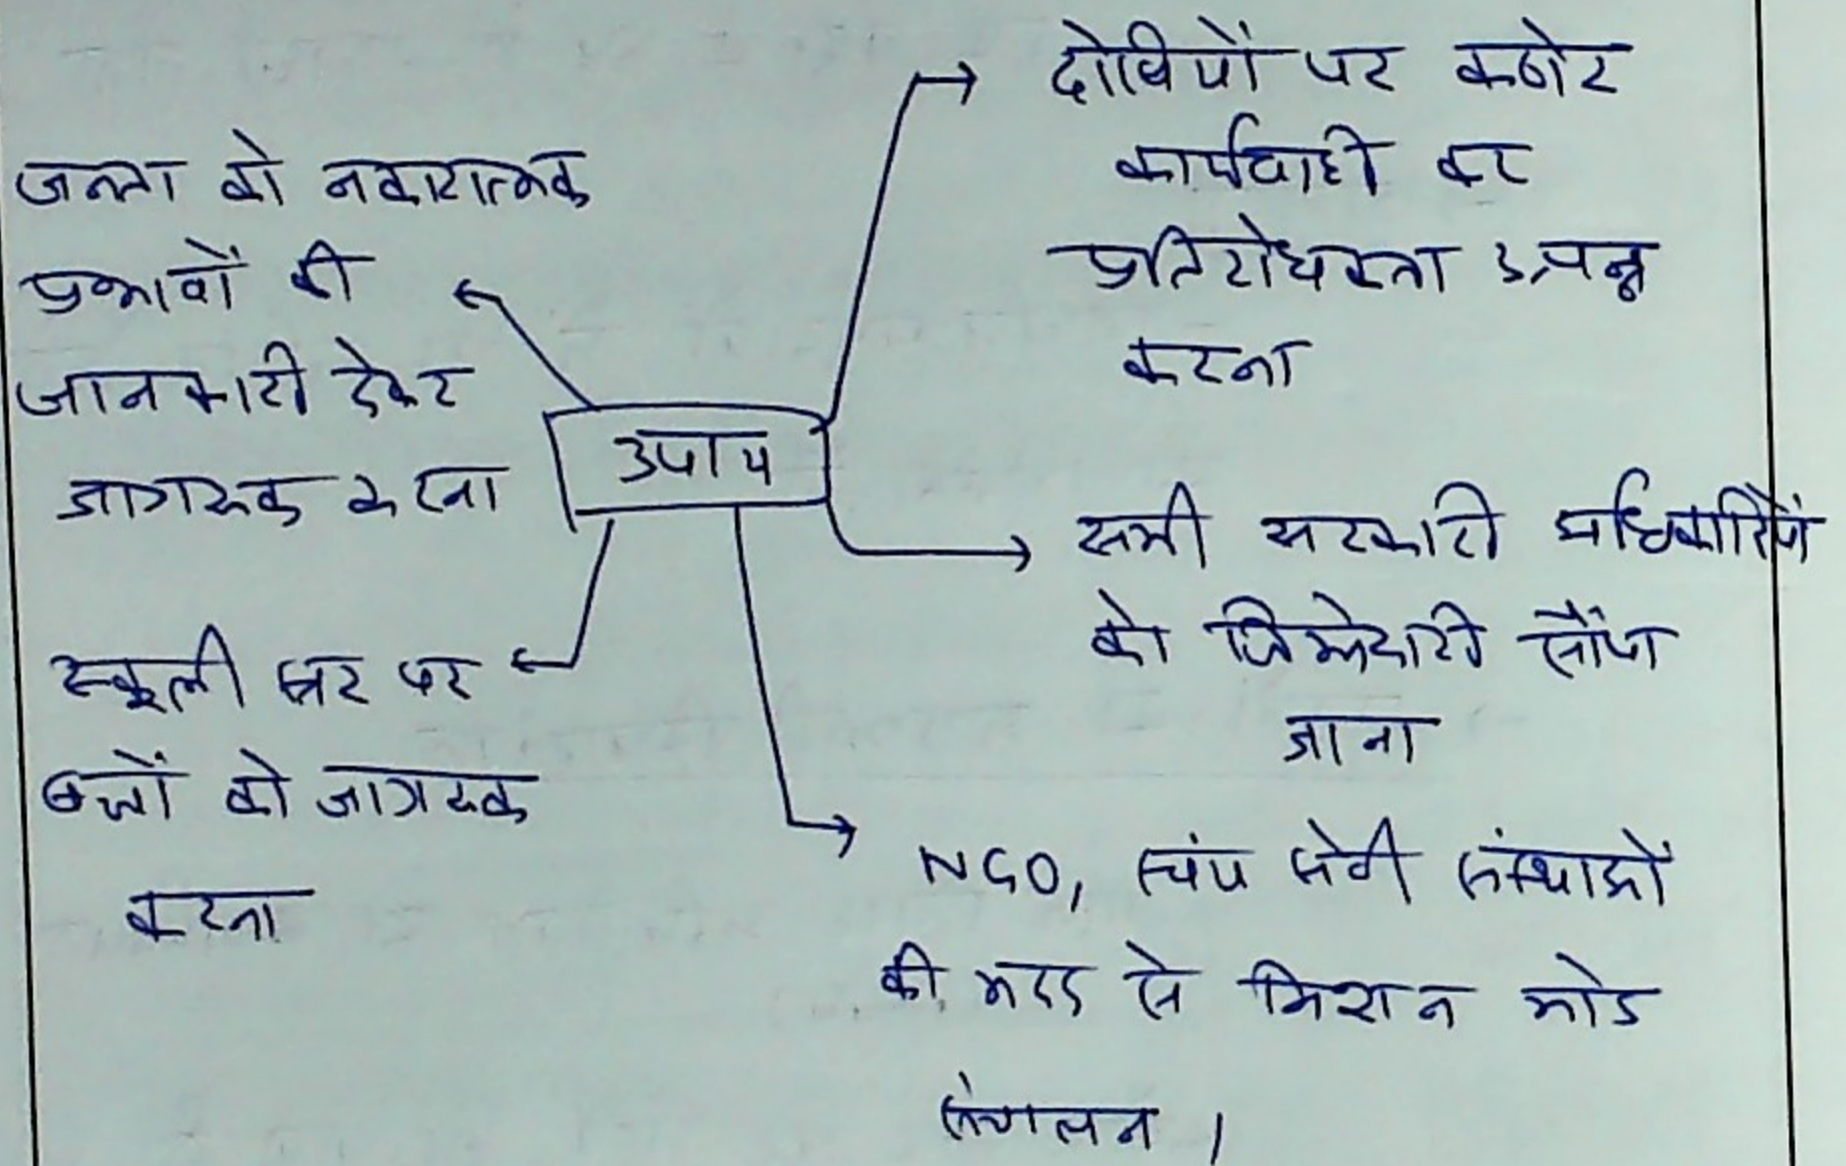 जनता को नकारात्मक
प्रभावों की
जानकारी देकर
जागरूक करना
उपाय
दोषियों पर कठोर
कार्यवाही कर
प्रतिरोधकता उत्पन्न
करना
सभी सरकारी अधिकारियों
को जिम्मेदारी सौंपा
जाना
स्कूली स्तर पर
बच्चों को जागरूक
करना
NGO, स्वंय सेवी संस्थाओं
की मदद से मिशन मोड
संचालन ।